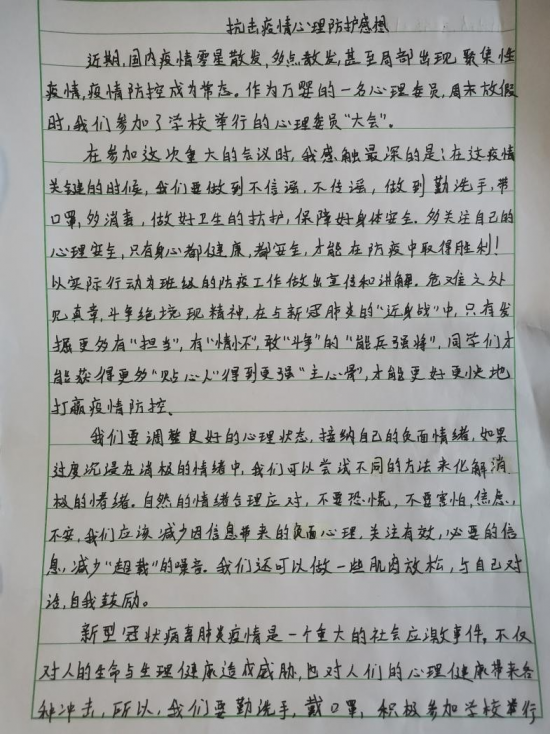 抗击疫情心理防护感想
近期,国内疫情零星散发,多点散发,甚至局部出现聚集性
疫情,疫情防控成为常态。作为万婴的一名心理委员,周末放假
时,我们参加了学校举行的心理委员“大会”。
在参加这次重大的会议时,我感触最深的是:在这疫情
关键的时候,我们要做到不信谣,不传谣,做到勤洗手,带
口罩,多消毒,做好卫生的防护,保障好身体安全.多关注自己的
心理安全,只有身心都健康,都安全,才能在防疫中取得胜利!
以实际行动为班级的防疫工作做出宣传和讲解.危难之处
见真章,斗争绝境现精神,在与新冠肺炎的“近身战”中,只有发
掘更多有“担当”,有“情怀”,敢“斗争”的“能兵强将”,同学们才
能获得更多“贴心人”得到更强“主心骨”,才能更好更快地
打赢疫情防控。
我们要调整良好的心理状态,接纳自己的负面情绪,如果
过度沉浸在消极的情绪中,我们可以尝试不同的方法来化解消
极的情绪.自然的情绪合理应对,不要恐慌,不要害怕,焦虑,
不安,我们应该减少因信息带来的负面心理,关注有效,必要的信
息,减少“超载”的噪音.我们还可以做一些肌肉放松,与自己对
话,自我鼓励。
新型冠状病毒肺炎疫情是一个重大的社会应激事件,不仅
对人的生命与生理健康造成威胁,也对人们的心理健康带来各
种冲击,所以,我们要勤洗手,戴口罩,积极参加学校举行